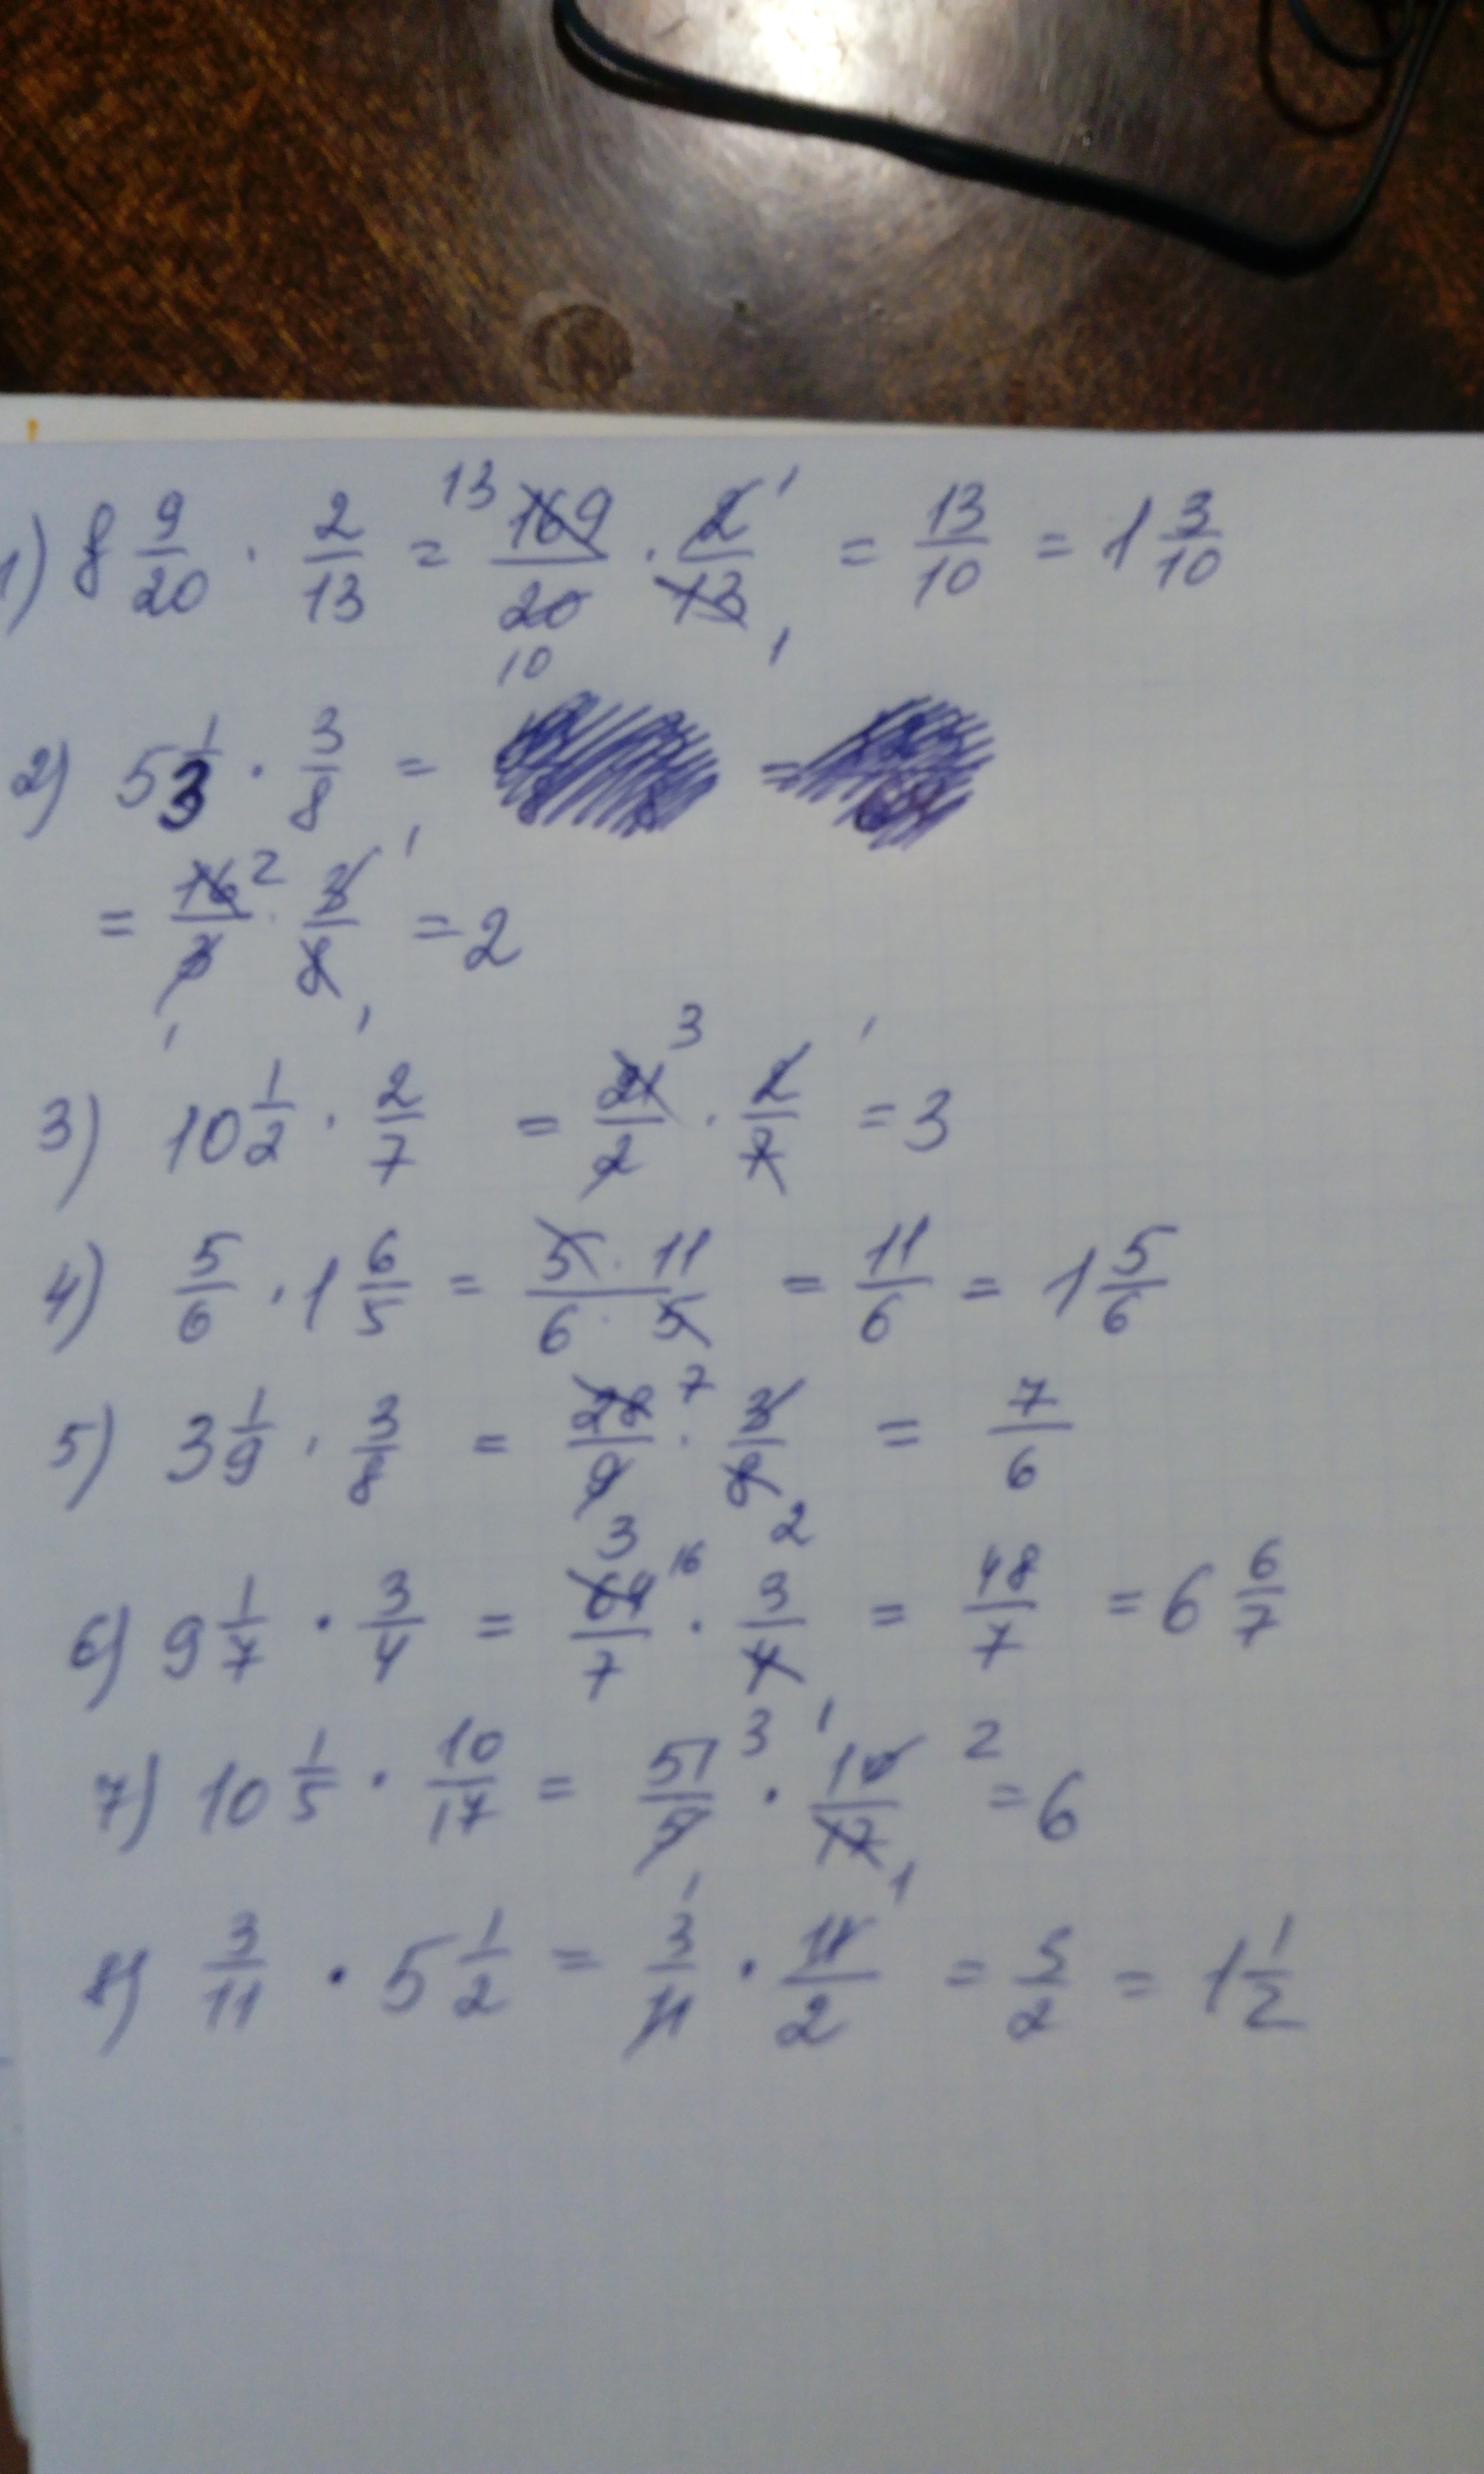 1) 8 9/20 · 2/13 = 169/20 · 2/13 = 13/10 = 1 3/10
2) 5 1/3 · 3/8 =
= 16/3 · 3/8 = 2
3) 10 1/2 · 2/7 = 21/2 · 2/7 = 3
4) 5/6 · 1 6/5 = 5 · 11/6 · 5 = 11/6 = 1 5/6
5) 3 1/9 · 3/8 = 28/9 · 3/8 = 7/6
6) 9 1/7 · 3/4 = 64/7 · 3/4 = 48/7 = 6 6/7
7) 10 1/5 · 10/17 = 51/5 · 10/17 = 6
8) 3/11 · 5 1/2 = 3/11 · 11/2 = 3/2 = 1 1/2